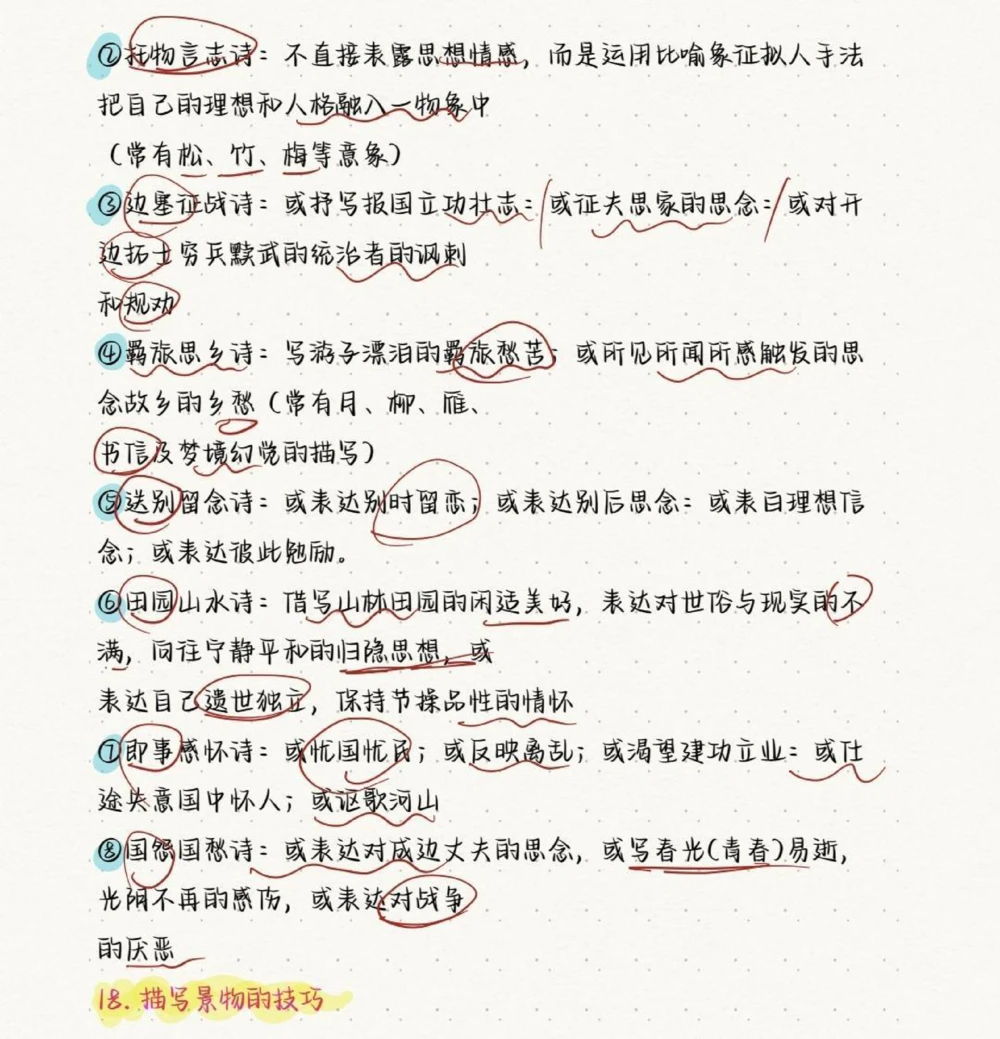 ②托物言志诗：不直接表露思想情感，而是运用比喻象征拟人手法
把自己的理想和人格融入一物象中
（常有松、竹、梅等意象）
③边塞征战诗：或抒写报国立功壮志：或征夫思家的思念：或对开
边拓土穷兵黩武的统治者的讽刺
和规劝
④羁旅思乡诗：写游子漂泊的羁旅愁苦；或所见所闻所感触发的思
念故乡的乡愁（常有月、柳、雁、
书信及梦境幻觉的描写）
⑤送别留念诗：或表达别时留恋；或表达别后思念：或表白理想信
念；或表达彼此勉励。
⑥田园山水诗：借写山林田园的闲适美好，表达对世俗与现实的不
满，向往宁静平和的归隐思想，或
表达自己遗世独立，保持节操品性的情怀
⑦即事感怀诗：或忧国忧民；或反映离乱；或渴望建功立业：或仕
途失意国中怀人；或讴歌河山
⑧国怨国愁诗：或表达对戍边丈夫的思念，或写春光(青春)易逝，
光阴不再的感伤，或表达对战争
的厌恶
18.描写景物的技巧